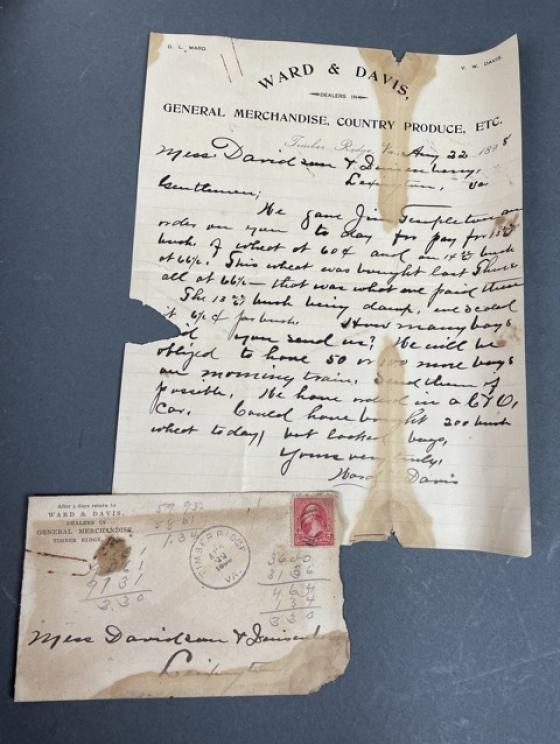 G. L. WARD.
V. W. DAVIS.
WARD & DAVIS,
DEALERS IN
GENERAL MERCHANDISE, COUNTRY PRODUCE, ETC.
Timber Ridge, Va. Aug 22 1898
Mess. Davidson &
Lexington, Va
Gentlemen;
We gave Jim Templeton an
order on you to day for pay for 13
bush. of wheat at 60¢ and on 14 bush
at 66¢. This wheat was bought last
all at 66¢ — that was what we paid them
The 13 bush being damp, we docked
it 6¢ per bush. How many bags
did you send us? We will be
obliged to have 50 or 100 more bags
on morning train. Send them if
possible. We have ordered in a C & O,
Car. Could have bought 200 bush
wheat today, but lacked bags,
Yours very truly,
Ward Davis
After 5 days return to
WARD & DAVIS,
DEALERS IN
GENERAL MERCHANDISE,
TIMBER RIDGE,
TIMBER RIDGE
VA.
9131
330
3600
3136
464
134
330
Mess Davidson &
Lexington